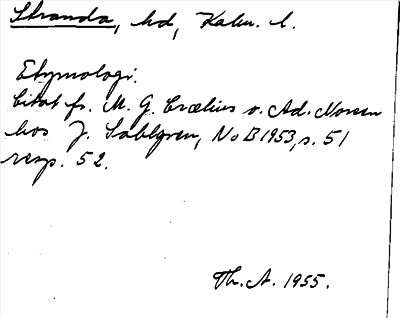 Stranda, hd, Kalm. l.
Etymologi:
Citat fr. M. G. Crælius o. Ad. Noreen
hos J. Sahlgren, NoB 1953, s. 51
resp. 52.
Th. A. 1955.